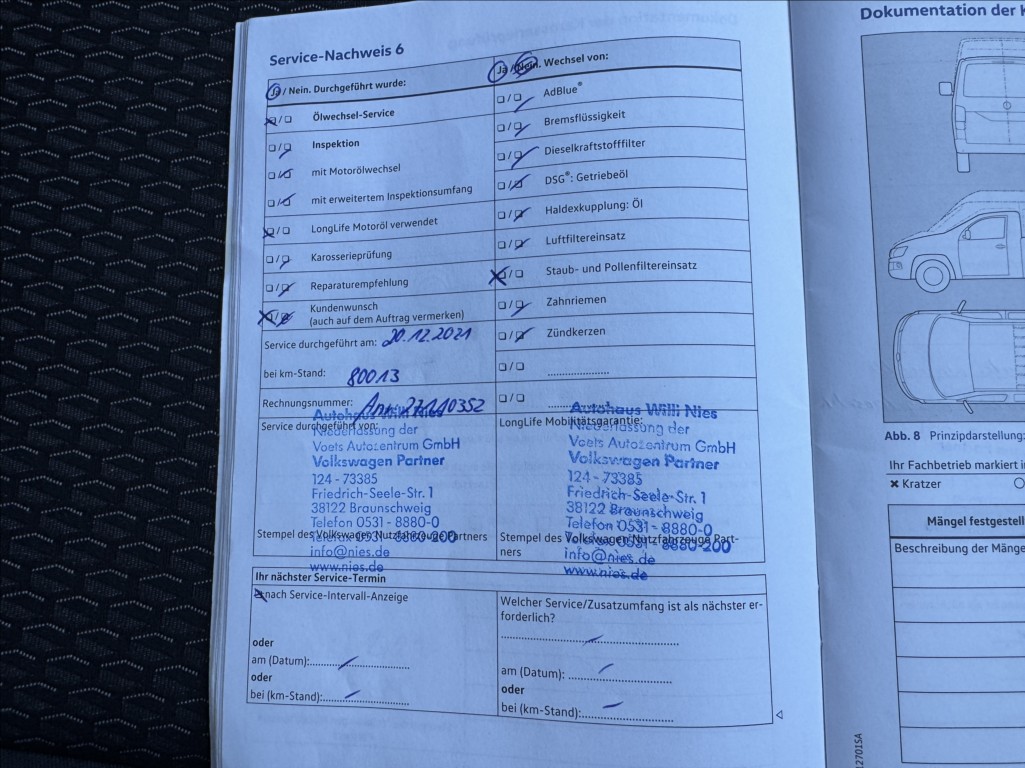 Service-Nachweis 6
Ja / Nein. Durchgeführt wurde:
Ölwechsel-Service
Inspektion
mit Motorölwechsel
mit erweitertem Inspektionsumfang
LongLife Motoröl verwendet
Karosserieprüfung
Reparaturempfehlung
Kundenwunsch
(auch auf dem Auftrag vermerken)
Service durchgeführt am: 20.12.2021
bei km-Stand: 80013
Rechnungsnummer:
Service durchgeführt von:
Autohaus Willi Nies
Niederlassung der
Voets Autozentrum GmbH
Volkswagen Partner
124 - 73385
Friedrich-Seele-Str. 1
38122 Braunschweig
Telefon 0531 - 8880-0
Telefax 0531 - 8880-200
Stempel des Volkswagen Nutzfahrzeuge Partners
info@nies.de
www.nies.de
Ja / Nein. Wechsel von:
AdBlue®
Bremsflüssigkeit
Dieselkraftstofffilter
DSG®: Getriebeöl
Haldexkupplung: Öl
Luftfiltereinsatz
Staub- und Pollenfiltereinsatz
Zahnriemen
Zündkerzen
LongLife Mobilitätsgarantie:
Autohaus Willi Nies
Niederlassung der
Voets Autozentrum GmbH
Volkswagen Partner
124 - 73385
Friedrich-Seele-Str. 1
38122 Braunschweig
Telefon 0531 - 8880-0
Telefax 0531 - 8880-200
Stempel des Volkswagen Nutzfahrzeuge Part-
ners
info@nies.de
www.nies.de
Ihr nächster Service-Termin
nach Service-Intervall-Anzeige
oder
am (Datum):
oder
bei (km-Stand):
Welcher Service/Zusatzumfang ist als nächster er-
forderlich?
am (Datum):
oder
bei (km-Stand):
Dokumentation der K
Abb. 8 Prinzipdarstellung:
Ihr Fachbetrieb markiert i
Kratzer
Mängel festgestell
Beschreibung der Mänge
12701SA